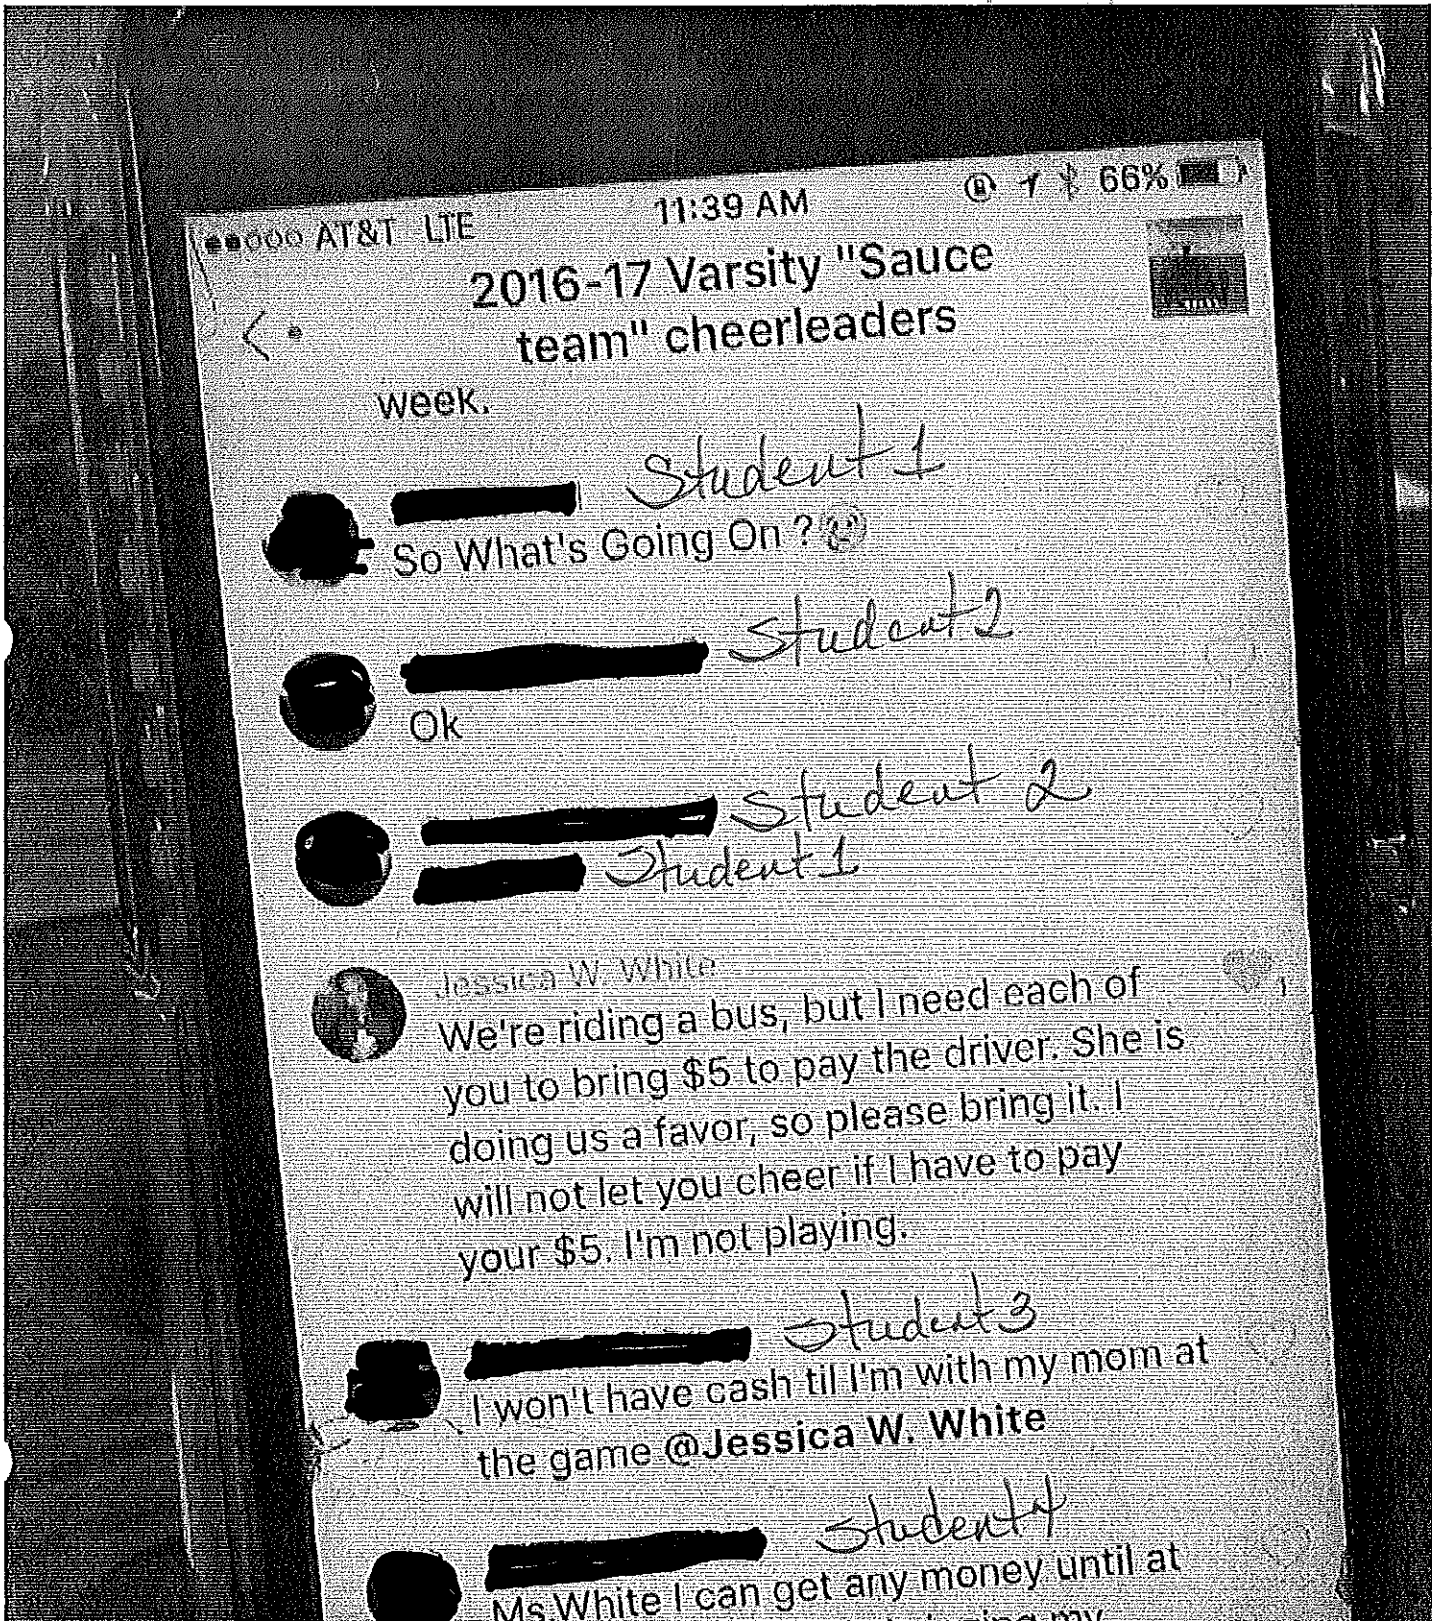 AT&T LTE 11:39 AM 66%
2016-17 Varsity "Sauce
team" cheerleaders
week.
Student 1
So What's Going On ?
Student 2
Ok
Student 2
Student 1
Jessica W. White
We're riding a bus, but I need each of
1
you to bring $5 to pay the driver. She is
doing us a favor, so please bring it. I
will not let you cheer if I have to pay
your $5. I'm not playing.
Student 3
I won't have cash til I'm with my mom at
the game @Jessica W. White
Student 4
Ms.White I can get any money until at
my